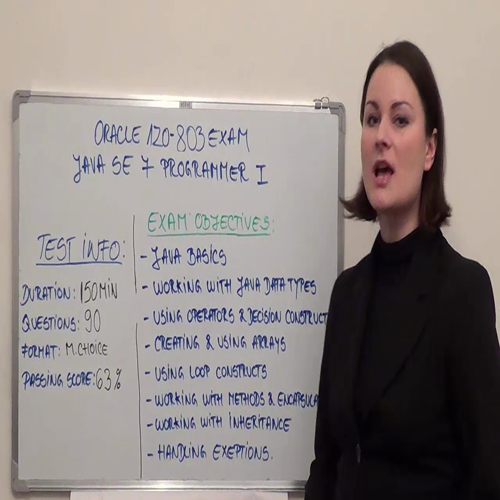 ORACLE 1Z0-803 EXAM
JAVA SE 7 PROGRAMMER I
TEST INFO:
DURATION: 150 MIN
QUESTIONS: 90
FORMAT: M.CHOICE
PASSING SCORE: 63%
EXAM OBJECTIVES:
- JAVA BASICS
- WORKING WITH JAVA DATA TYPES
- USING OPERATORS & DECISION CONSTRUCT
- CREATING & USING ARRAYS
- USING LOOP CONSTRUCTS
- WORKING WITH METHODS & ENCAPSULA
- WORKING WITH INHERITANCE
- HANDLING EXEPTIONS.